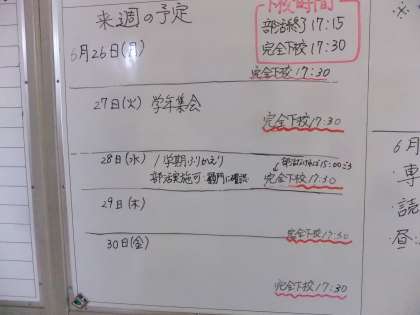 来週の予定
下校時間
部活終了 17:15
完全下校 17:30
6月26日(月)
完全下校 17:30
27日(火) 学年集会
完全下校 17:30
28日(水) 1学期ふりかえり
部活実施可・顧問に確認
完全下校 17:30
29日(木)
完全下校 17:30
30日(金)
完全下校 17:30
6月
・専
・読
・昼